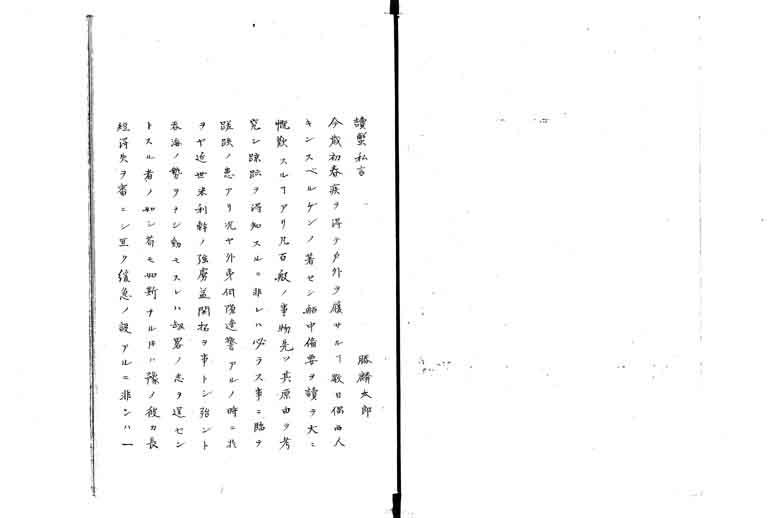 讀蟹私言
勝麟太郎
今歳初春疾ヲ得テ戸外ヲ履サルヿ数日偶西人
キンスベルゲンノ著セシ船中備要ヲ讀ラ大ニ
慨歎スルヿアリ凡百般ノ事物先ツ其原由ヲ考
究シ踪跡ヲ得知スルニ非レハ必ラス事ニ臨ヲ
蹉跌ノ患アリ况ヤ外夷伺隙邊警アルノ時ニ於
ヲヤ近世米利幹ノ強虜益開拓ヲ事トシ殆ント
呑海ノ勢ヲナシ動モスレハ劫畧ノ志ヲ逞セン
トスル者ノ如シ苟モ如斯ナルトキハ豫ノ彼カ長
短得失ヲ審ニシ且ク緩急ノ設アルニ非ンハ一